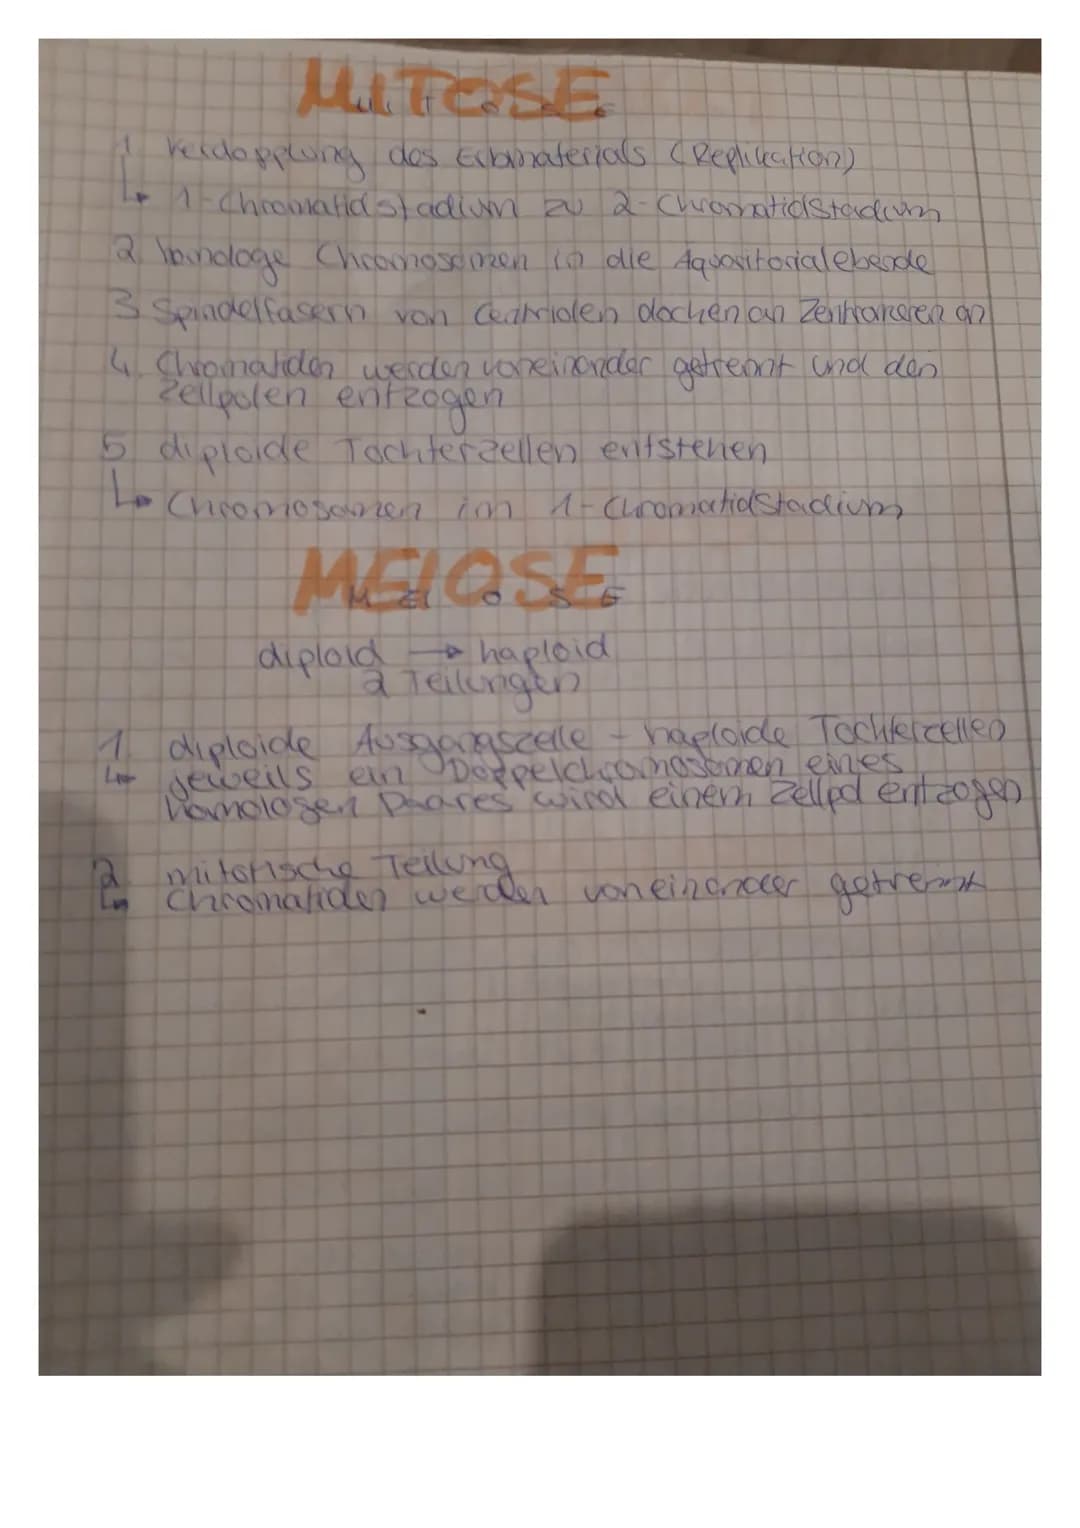 MITOSE
1 Verdopplung des Erbmaterials (Replikation)
↳ 1-Chromatidstadium zu 2-Chromatidstadium
2 homologe Chromosomen in die Äquatorialebende
3 Spindelfasern von Centriolen docken an Zentromeren an
4. Chromatiden werden voneinander getrennt und den
Zellpolen entzogen
5 diploide Tochterzellen entstehen
↳ Chromosomen im 1-Chromatidstadium
MEIOSE
diploid → haploid
2 Teilungen
1. diploide Ausgangszelle - haploide Tochterzellen
↳ jeweils ein Doppelchromosomen eines
homologen Paares wird einem Zellpol entzogen
2. mitotische Teilung
↳ Chromatiden werden voneinander getrennt